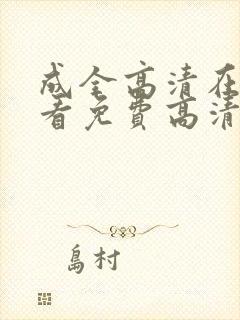 成全高清在
看免费高清
島村